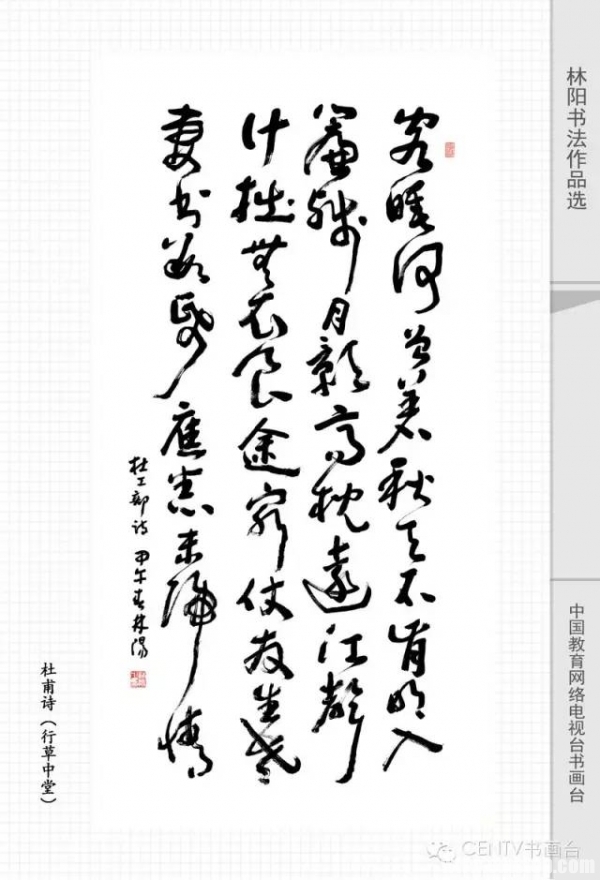 林阳书法作品选
客睡何曾著秋天不肯明入
簾殘月影高枕遠江聲
计拙無衣食途窮仗友生老
妻书数帋應悉未歸情
杜工部诗 甲午春林陽
杜甫诗（行草中堂）
中国教育网络电视台书画台
CENTV书画台